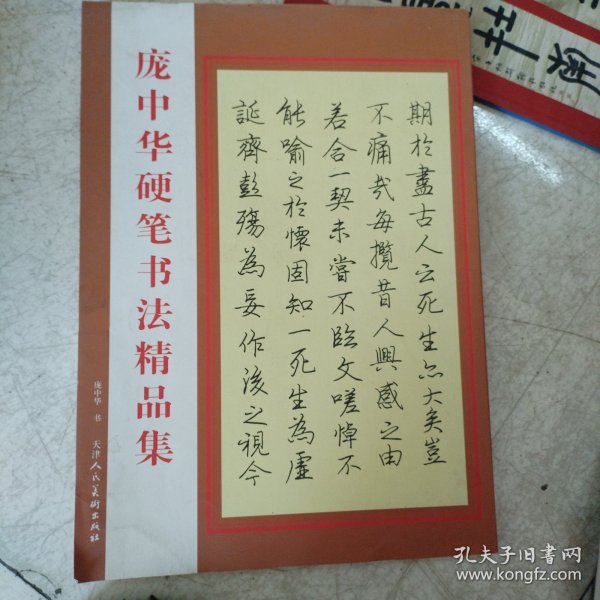 庞中华硬笔书法精品集
庞中华 书 天津人民美术出版社
期於盡古人云死生亦大矣豈
不痛哉每攬昔人興感之由
若合一契未嘗不臨文嗟悼不
能喻之於懷固知一死生為虛
誕齊彭殤為妄作後之視今
孔夫子旧书网
www.kongfz.com